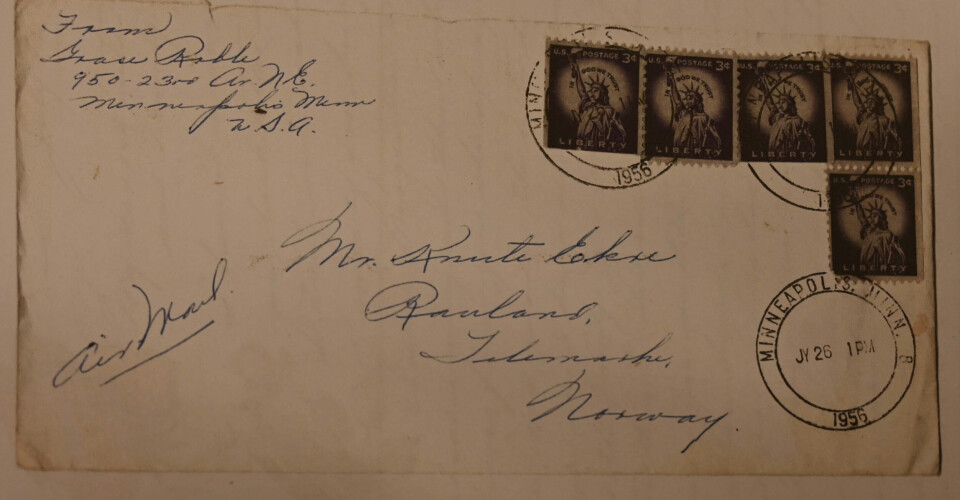 From
Grase Roble
950-23rd Av. N.E.
Minneapolis Minn
U.S.A.
U.S. POSTAGE 3¢
IN GOD WE TRUST
LIBERTY
U.S. POSTAGE 3¢
IN GOD WE TRUST
LIBERTY
U.S. POSTAGE 3¢
IN GOD WE TRUST
LIBERTY
U.S. POSTAGE 3¢
LIBERTY
U.S. POSTAGE 3¢
IN GOD WE TRUST
LIBERTY
1956
Mr. Knute Ekre
Rauland,
Telemarke,
Norway.
Air Mail.
MINNEAPOLIS, MINN. 8
JY 26 1 PM
1956